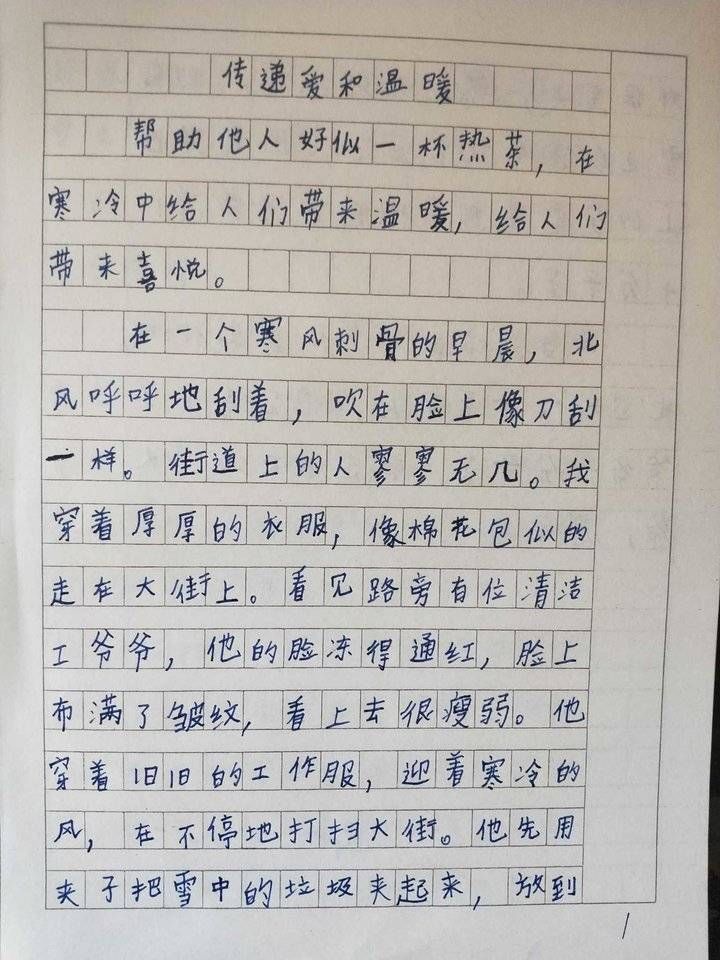 传递爱和温暖
帮助他人好似一杯热茶，在
寒冷中给人们带来温暖，给人们
带来喜悦。
在一个寒风刺骨的早晨，北
风呼呼地刮着，吹在脸上像刀刮
一样。街道上的人寥寥无几。我
穿着厚厚的衣服，像棉花包似的
走在大街上。看见路旁有位清洁
工爷爷，他的脸冻得通红，脸上
布满了皱纹，看上去很瘦弱。他
穿着旧旧的工作服，迎着寒冷的
风，在不停地打扫大街。他先用
夹子把雪中的垃圾夹起来，放到
1